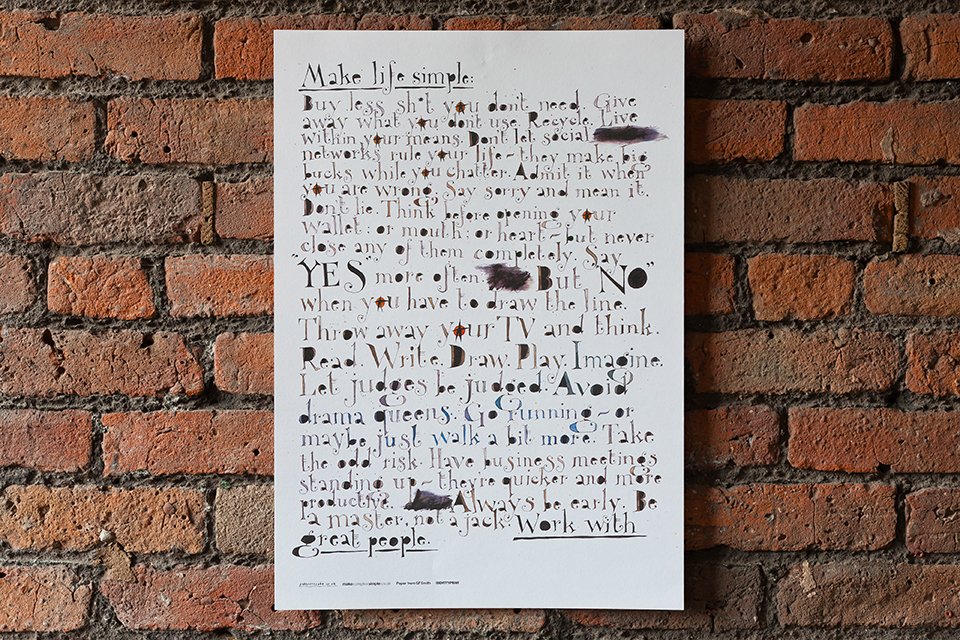 Make life simple:
Buy less sh*t you don't need. Give
away what you don't use. Recycle. Live
within your means. Don't let social
networks rule your life ~ they make big
bucks while you chatter. Admit it when
you are wrong. Say sorry and mean it.
Don't lie. Think before opening your
wallet: or mouth: or heart ~ but never
close any of them completely. Say
"YES" more often. But "NO"
when you have to draw the line.
Throw away your TV and think.
Read. Write. Draw. Play. Imagine.
Let judges be judged. Avoid
drama queens. Go running ~ or
maybe just walk a bit more. Take
the odd risk. Have business meetings
standing up ~ they're quicker and more
productive. Always be early. Be
a master, not a jack. Work with
great people.
Paper from GF Smith